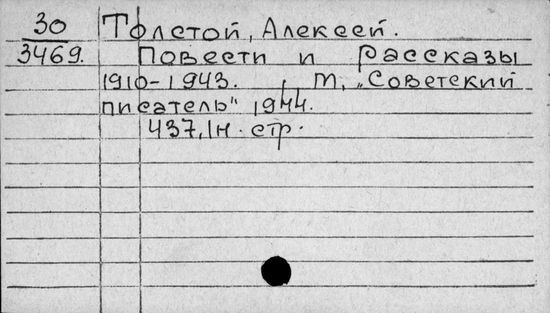 30 Толстой, Алексей.
3469. Повести и рассказы
1910-1943. , М, „Советский
писатель" 1944.
437, 1н. стр.